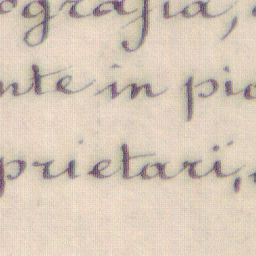 ografia,
nte in pic
prietarï,